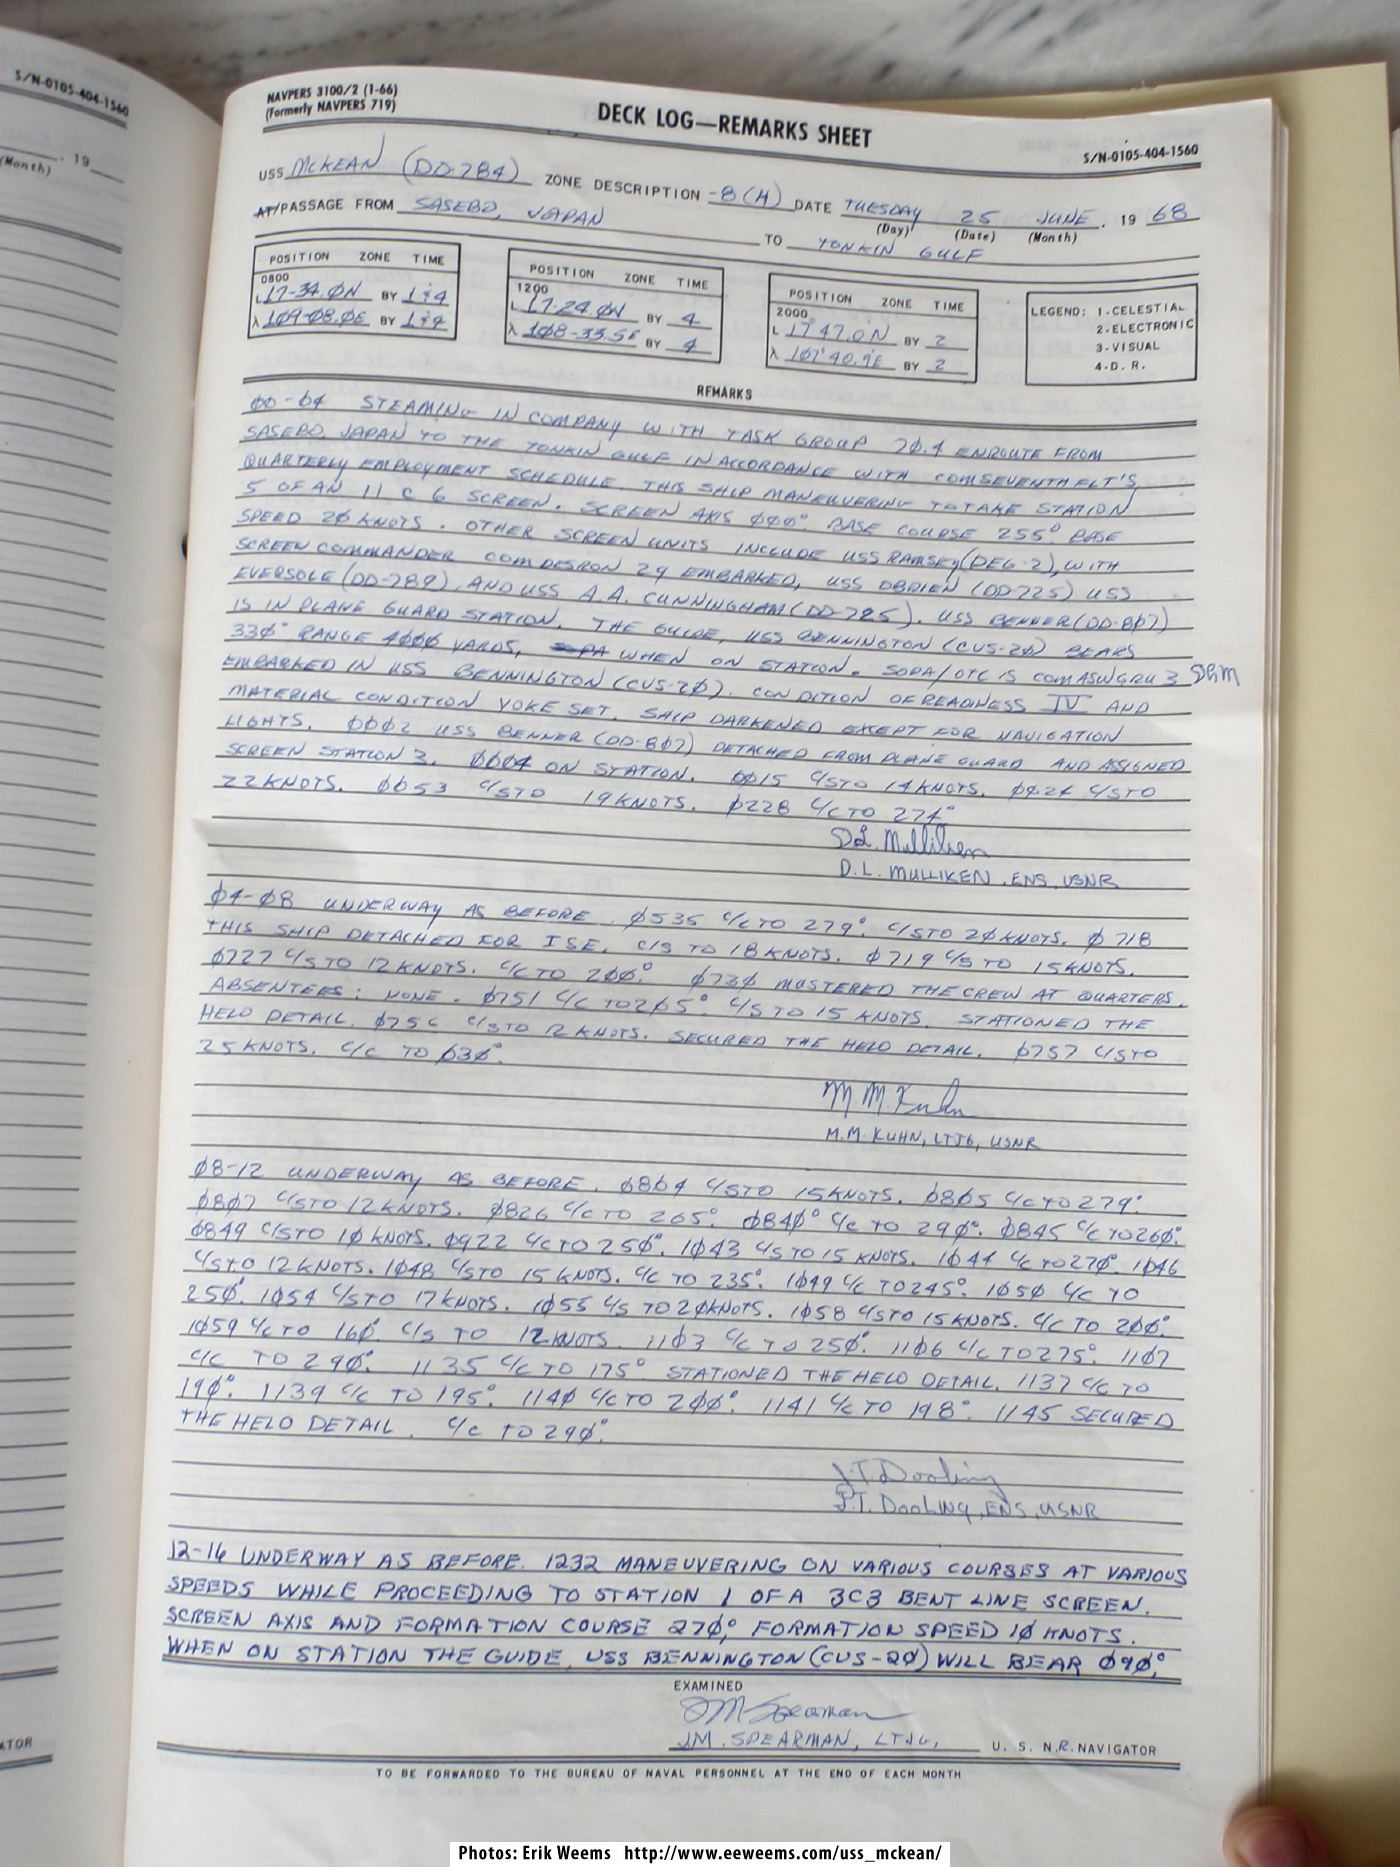 S/N-0105-404-1560
, 19
(Month)
ATOR
NAVPERS 3100/2 (1-66)
(Formerly NAVPERS 719)
DECK LOG—REMARKS SHEET
S/N-0105-404-1560
USS MCKEAN (DD-784) ZONE DESCRIPTION -8(H) DATE TUESDAY 25 JUNE, 19 68
(Day) (Date) (Month)
AT/PASSAGE FROM SASEBO, JAPAN TO TONKIN GULF
POSITION ZONE TIME
0800
L 17-34.ØN BY 1&4
λ 1Ø9-Ø8.ØE BY 1&4
POSITION ZONE TIME
1200
L 17-24.ØN BY 4
λ 1Ø8-33.5E BY 4
POSITION ZONE TIME
2000
L 17°47.0N BY 2
λ 1Ø7°40.9'E BY 2
LEGEND: 1-CELESTIAL
2-ELECTRONIC
3-VISUAL
4-D. R.
REMARKS
ØØ-Ø4 STEAMING IN COMPANY WITH TASK GROUP 7Ø.4 ENROUTE FROM
SASEBO, JAPAN TO THE TONKIN GULF IN ACCORDANCE WITH COMSEVENTHFLT'S
QUARTERLY EMPLOYMENT SCHEDULE. THIS SHIP MANEUVERING TO TAKE STATION
5 OF AN 11 C 6 SCREEN. SCREEN AXIS ØØØ°. BASE COURSE 255° BASE
SPEED 2Ø KNOTS. OTHER SCREEN UNITS INCLUDE USS RAMSEY(DEG-2), WITH
SCREEN COMMANDER COMDESRON 29 EMBARKED, USS OBRIEN (DD-725) USS
EVERSOLE (DD-789), AND USS A.A. CUNNINGHAM (DD-725). USS BENNER (DD-8Ø7)
IS IN PLANE GUARD STATION. THE GUIDE, USS BENNINGTON (CVS-2Ø) BEARS
33Ø° RANGE 4ØØØ YARDS, WHEN ON STATION. SOPA/OTC IS COMASWGRU 3 DLM
EMBARKED IN USS BENNINGTON (CVS-2Ø). CONDITION OF READINESS IV AND
MATERIAL CONDITION YOKE SET. SHIP DARKENED EXCEPT FOR NAVIGATION
LIGHTS. ØØØ2 USS BENNER (DD-8Ø7) DETACHED FROM PLANE GUARD AND ASSIGNED
SCREEN STATION 3. ØØØ4 ON STATION. ØØ15 C/S TO 14 KNOTS. ØØ24 C/S TO
22 KNOTS. ØØ53 C/S TO 19 KNOTS. Ø228 C/C TO 274°
D.L. Mulliken
D.L. MULLIKEN, ENS, USNR
Ø4-Ø8 UNDERWAY AS BEFORE. Ø535 C/C TO 279°. C/S TO 2Ø KNOTS. Ø718
THIS SHIP DETACHED FOR ISE. C/S TO 18 KNOTS. Ø719 C/S TO 15 KNOTS.
Ø727 C/S TO 12 KNOTS. C/C TO 2ØØ°. Ø73Ø MUSTERED THE CREW AT QUARTERS.
ABSENTEES: NONE. Ø751 C/C TO 265°. C/S TO 15 KNOTS. STATIONED THE
HELO DETAIL. Ø756 C/S TO 12 KNOTS. SECURED THE HELO DETAIL. Ø757 C/S TO
25 KNOTS. C/C TO Ø3Ø°.
M.M. Kuhn
M.M. KUHN, LTJG, USNR
Ø8-12 UNDERWAY AS BEFORE. Ø8Ø4 C/S TO 15 KNOTS. Ø8Ø5 C/C TO 279°.
Ø8Ø7 C/S TO 12 KNOTS. Ø826 C/C TO 265°. Ø84Ø° C/C TO 29Ø°. Ø845 C/C TO 26Ø°.
Ø849 C/S TO 1Ø KNOTS. Ø922 C/C TO 25Ø°. 1Ø43 C/S TO 15 KNOTS. 1Ø44 C/C TO 27Ø°. 1Ø46
C/S TO 12 KNOTS. 1Ø48 C/S TO 15 KNOTS. C/C TO 235°. 1Ø49 C/C TO 245°. 1Ø5Ø C/C TO
25Ø°. 1Ø54 C/S TO 17 KNOTS. 1Ø55 C/S TO 2Ø KNOTS. 1Ø58 C/S TO 15 KNOTS. C/C TO 2ØØ°.
1Ø59 C/C TO 16Ø°. C/S TO 12 KNOTS. 11Ø3 C/C TO 25Ø°. 11Ø6 C/C TO 275°. 11Ø7
C/C TO 29Ø°. 1135 C/C TO 175° STATIONED THE HELO DETAIL. 1137 C/C TO
19Ø°. 1139 C/C TO 195°. 114Ø C/C TO 2ØØ°. 1141 C/C TO 198°. 1145 SECURED
THE HELO DETAIL. C/C TO 29Ø°.
J.T. Dooling
J.T. DOOLING, ENS, USNR
12-16 UNDERWAY AS BEFORE. 1232 MANEUVERING ON VARIOUS COURSES AT VARIOUS
SPEEDS WHILE PROCEEDING TO STATION 1 OF A 3C3 BENT LINE SCREEN.
SCREEN AXIS AND FORMATION COURSE 27Ø°, FORMATION SPEED 1Ø KNOTS.
WHEN ON STATION THE GUIDE, USS BENNINGTON (CVS-2Ø) WILL BEAR Ø9Ø°,
EXAMINED
JM Spearman
J.M. SPEARMAN, LTJG, U. S. N.R. NAVIGATOR
TO BE FORWARDED TO THE BUREAU OF NAVAL PERSONNEL AT THE END OF EACH MONTH
Photos: Erik Weems http://www.eeweems.com/uss_mckean/